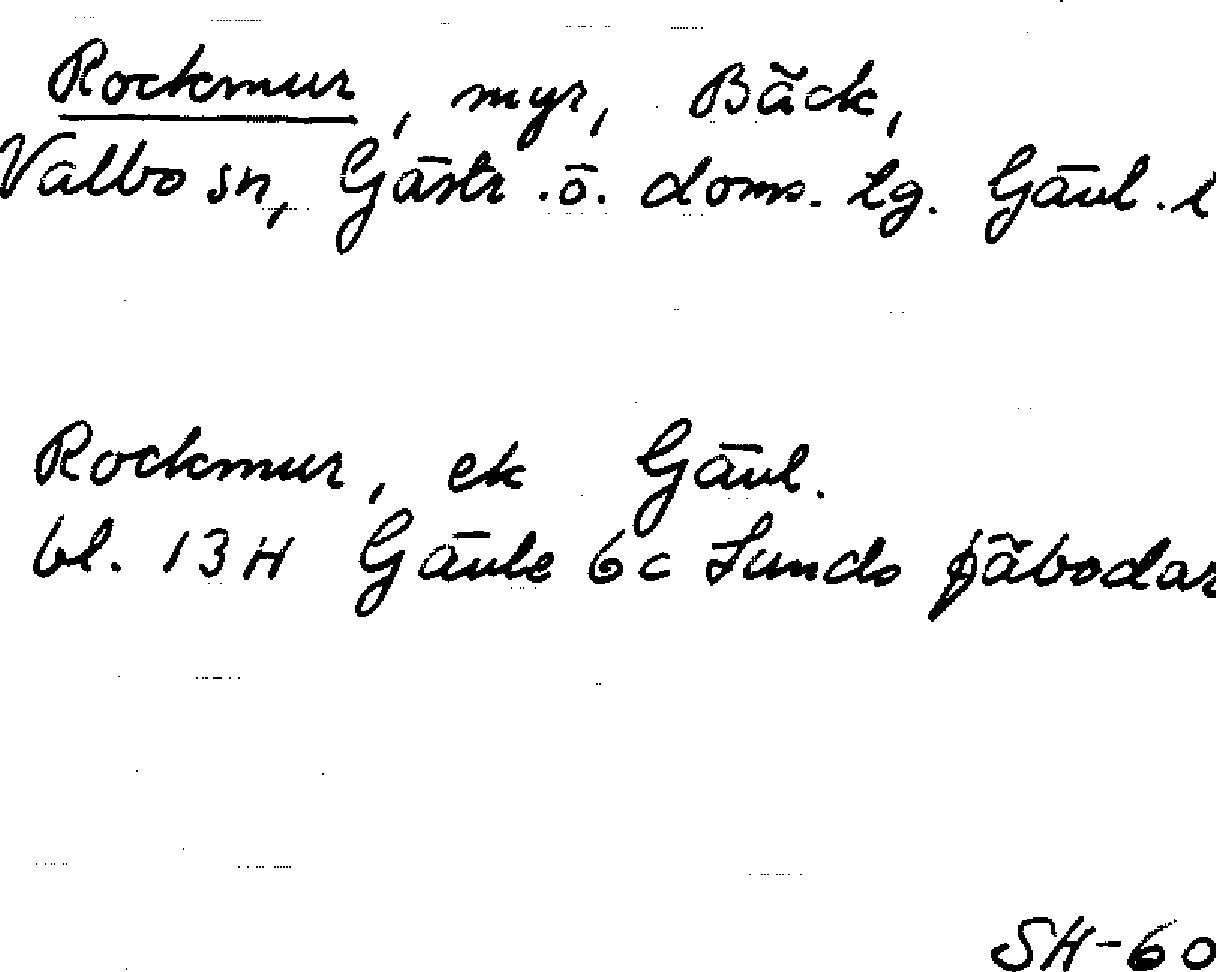 Rockmur, myr, Bäck,
Valbo sn, Gästr. ö. doms. tg. Gävl. l
Rockmur, ek Gävl.
bl. 13H Gävle 6c Lunds fäbodar
SH-60